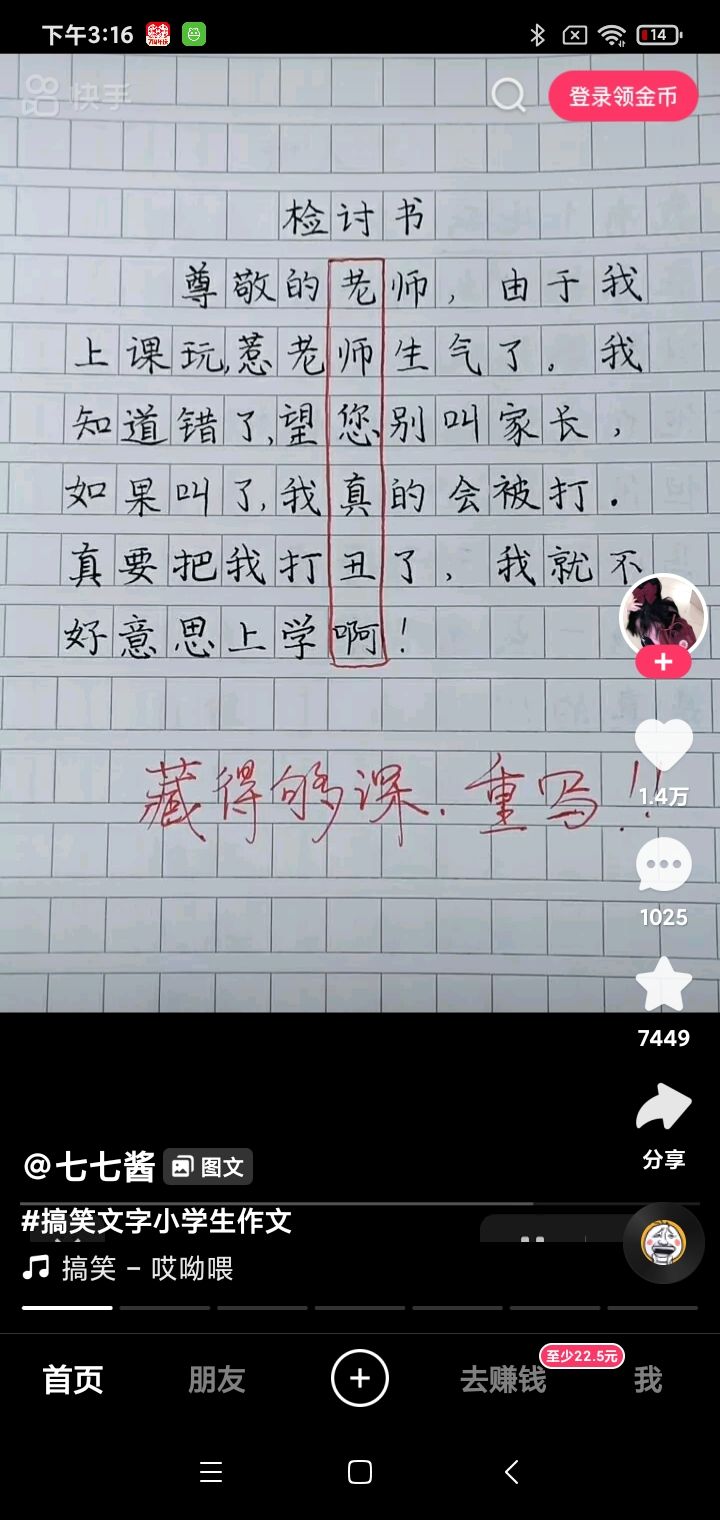 下午3:16
14
快手
登录领金币
检讨书
尊敬的老师，由于我
上课玩,惹老师生气了。我
知道错了,望您别叫家长，
如果叫了,我真的会被打.
真要把我打丑了，我就不
好意思上学啊!
藏得够深.重写!!
1.4万
1025
7449
分享
@七七酱 图文
#搞笑文字小学生作文
搞笑 - 哎呦喂
首页
朋友
去赚钱
至少22.5元
我